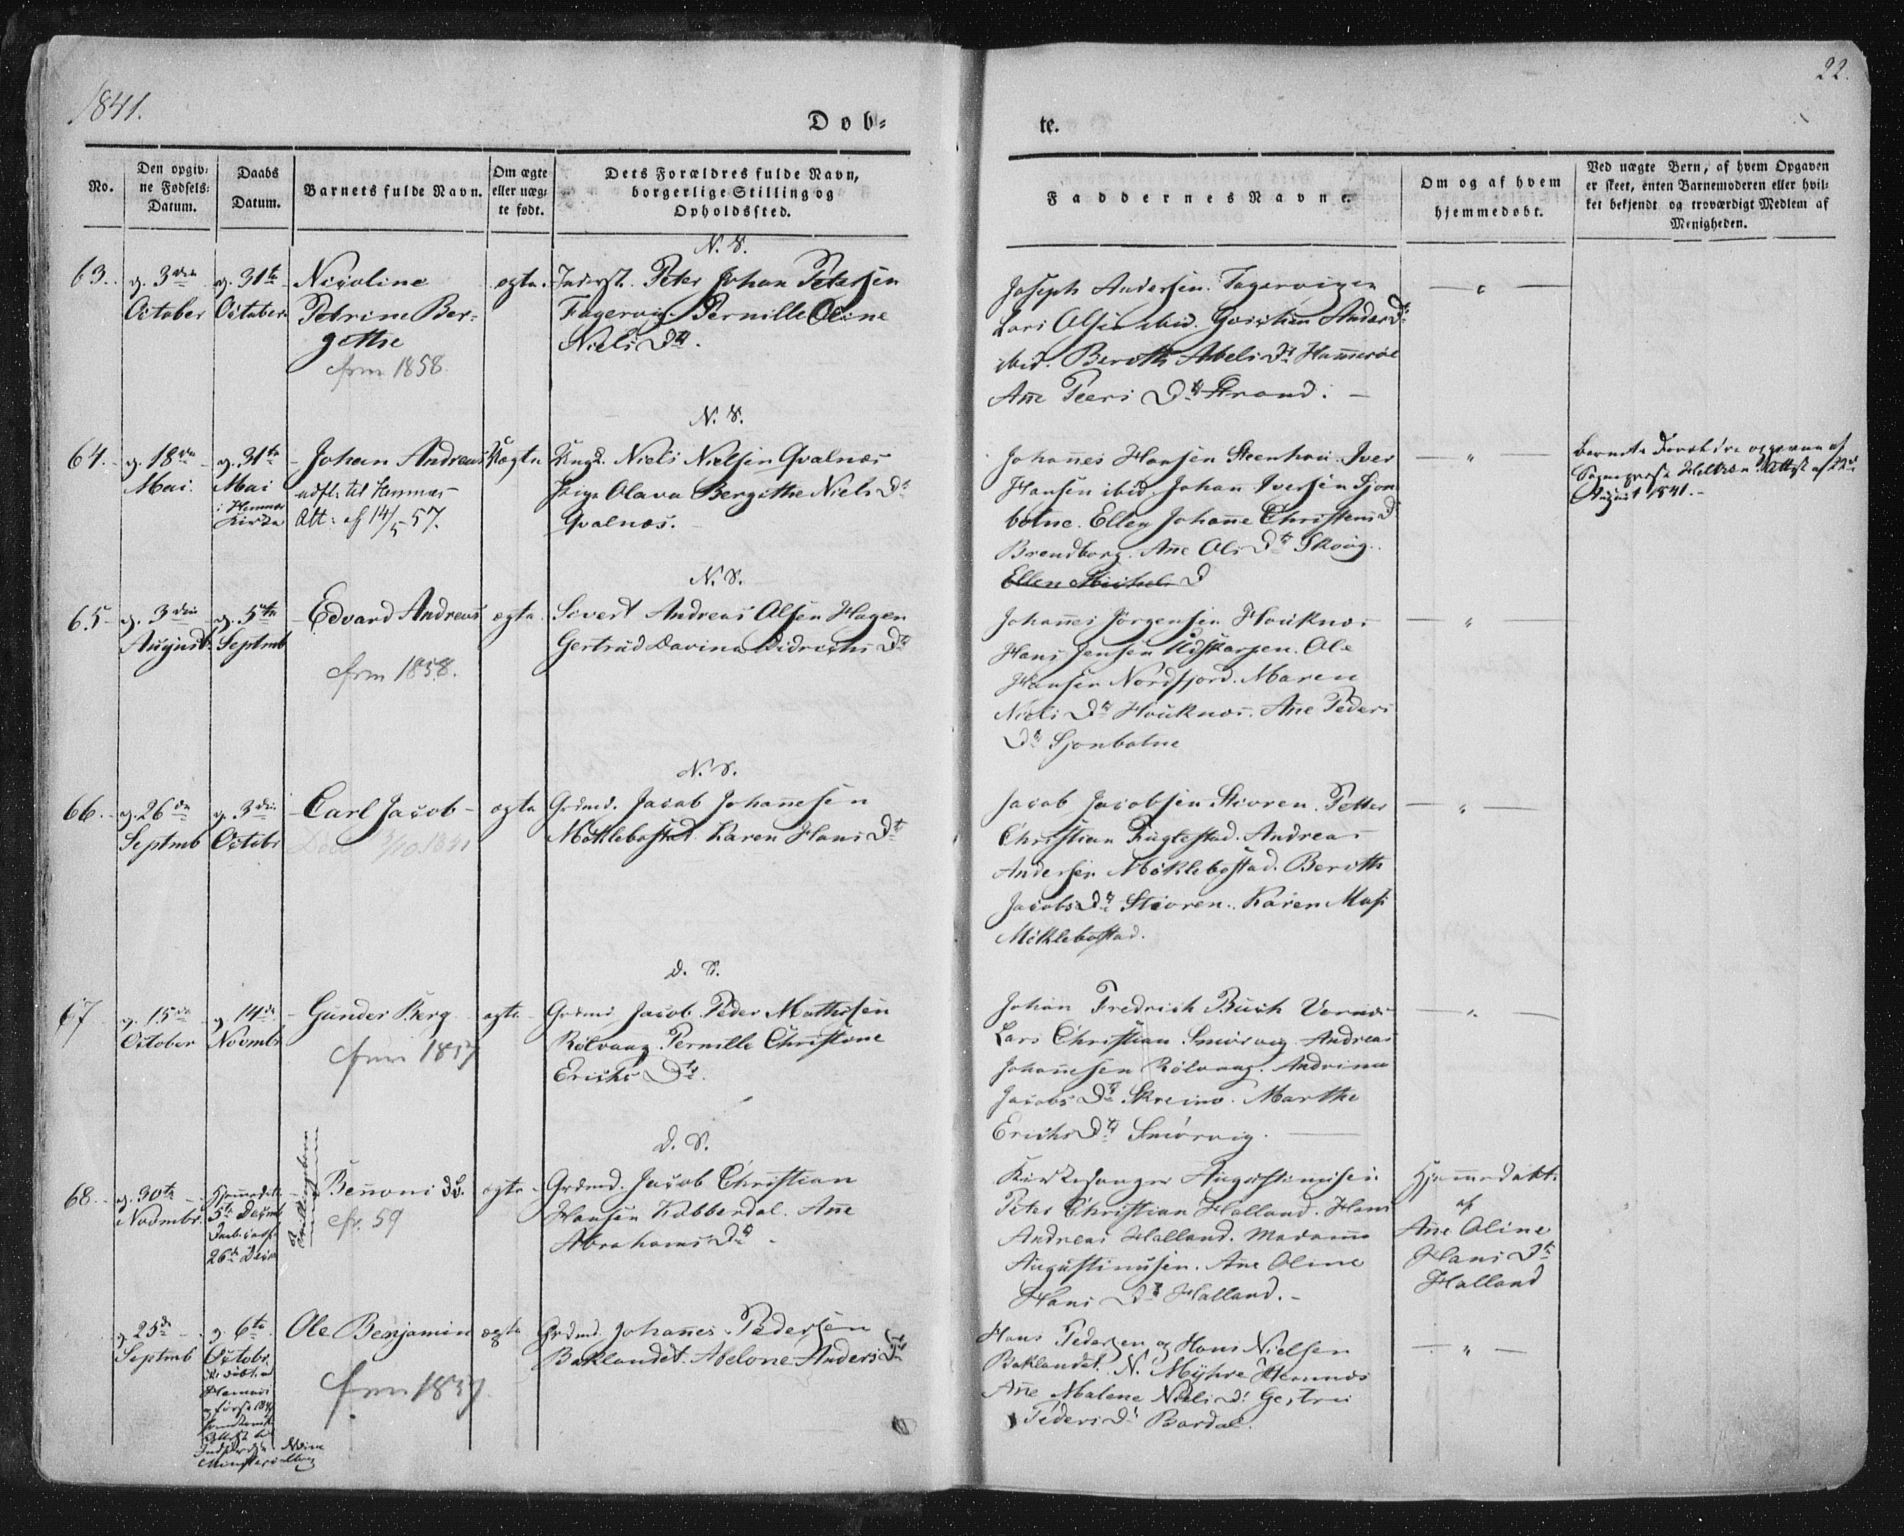 1841.
22.
Døb-
te.
No.
Den opgiv-
ne Fødsels-
Datum.
Daabs
Datum.
Barnets fulde Navn.
Om ægte
eller uæg-
te født.
Dets Forældres fulde Navn,
borgerlige Stilling og
Opholdssted.
Faddernes Navne.
Om og af hvem
hjemmedøbt.
Ved uægte Børn, af hvem Opgaven
er skeet, enten Barnemoderen eller hvil-
ket bekjendt og troværdigt Medlem af
Menigheden.
N. S.
63.
d. 3die
October
d. 31te
October
Nicoline
Petrine Ber-
gethe
frm 1858
ægte.
Inderst. Peter Johan Petersen
Fagervig. Pernille Oline
Niels Dtr.
Joseph Andersen Fagervigen
Lars Olsen ibid. Anders Dr
ibid. Bereth Abels Dr Hammerøe
Ane Peers Dtr Strand.
N. S.
64.
d. 18de
Mai.
d. 31te
Mai
i Hemnes
Kirke
Johan Andreas
udfl. til Hemnes
Att: af 14/5 57.
Uægte
Ungk. Niels Nielsen Qvalnæs
Pige Olava Bergithe Niels Dr
Qvalnæs.
Johannes Hansen Steenhau. Iver
Hansen ibid. Johan Iversen Sjon-
botne. Ellen Johanne Christens D
Brendborg. Ane Ols Dtr Skoug.
Ellen D
August 1841.
N. S.
65
d. 3die
August
d. 5te
Septmb
Edvard Andreas
frm 1858.
ægte.
Sivert Andreas Olsen Hagen
Gertrud Davina Didrichs Dtr
Johannes Jørgensen Houknes
Hans Jensen Ole
Hansen Nordfjord. Maren
Niels Dtr Houknes. Ane Peders
Dtr Sjonbotne
N. S.
66.
d. 26de
Septmb
d. 3die
Octobr
Carl Jacob
ægte
Grdmd. Jacob Johannesen
Möklebostad. Karen Hans Dtr
Jacob Jacobsen Stivren. Petter
Christian Fuglestad. Andreas
Andersen Möklebostad. Bereth
Jacobs Dtr Stivren. Karen
Möklebostad.
D. S.
67
d. 15de
October
d. 14de
Novmbr
Gunder Berg
frm 1857
ægte
Grdmd. Jacob Peder Mathisen
Rølvaag Pernille Christine
Erichs Dtr.
Johan Fredrich Buch Vernes
Lars Christian Smørvig Andreas
Johannesen Rølvaag. Andrina
Jacobs Dtr Skreino. Marthe
Erichs Dtr Smørvig.
D. S.
68.
d. 30te
Novmbr.
Hjemmedøbt
5te Decmb
26de Decm
Tvillingbørn
Benoni
fr. 59
ægte
Grdmd. Jacob Christian
Hansen Kobberdal. Ane
Abrahams Dtr
Kirkesanger Augustinusen
Peter Christian Halland. Hans
Andreas Halland. Madame
Augustinusen. Ane Oline
Hans Dtr Halland.
Hjemmedøbt
af
Ane Oline
Hans Dtr
Halland
d. 25de
Septmb
d. 6te
Octobr.
Ole Benjamin
frm 1857
ægte
Grdmd. Johannes Pedersen
Baklandet. Abelone Anders Dtr
Hans Pedersen og Hans Nielsen
Baklandet. N. Myhre Hemnes
Ane Malene Niels D.
Peders Dr Bardal.